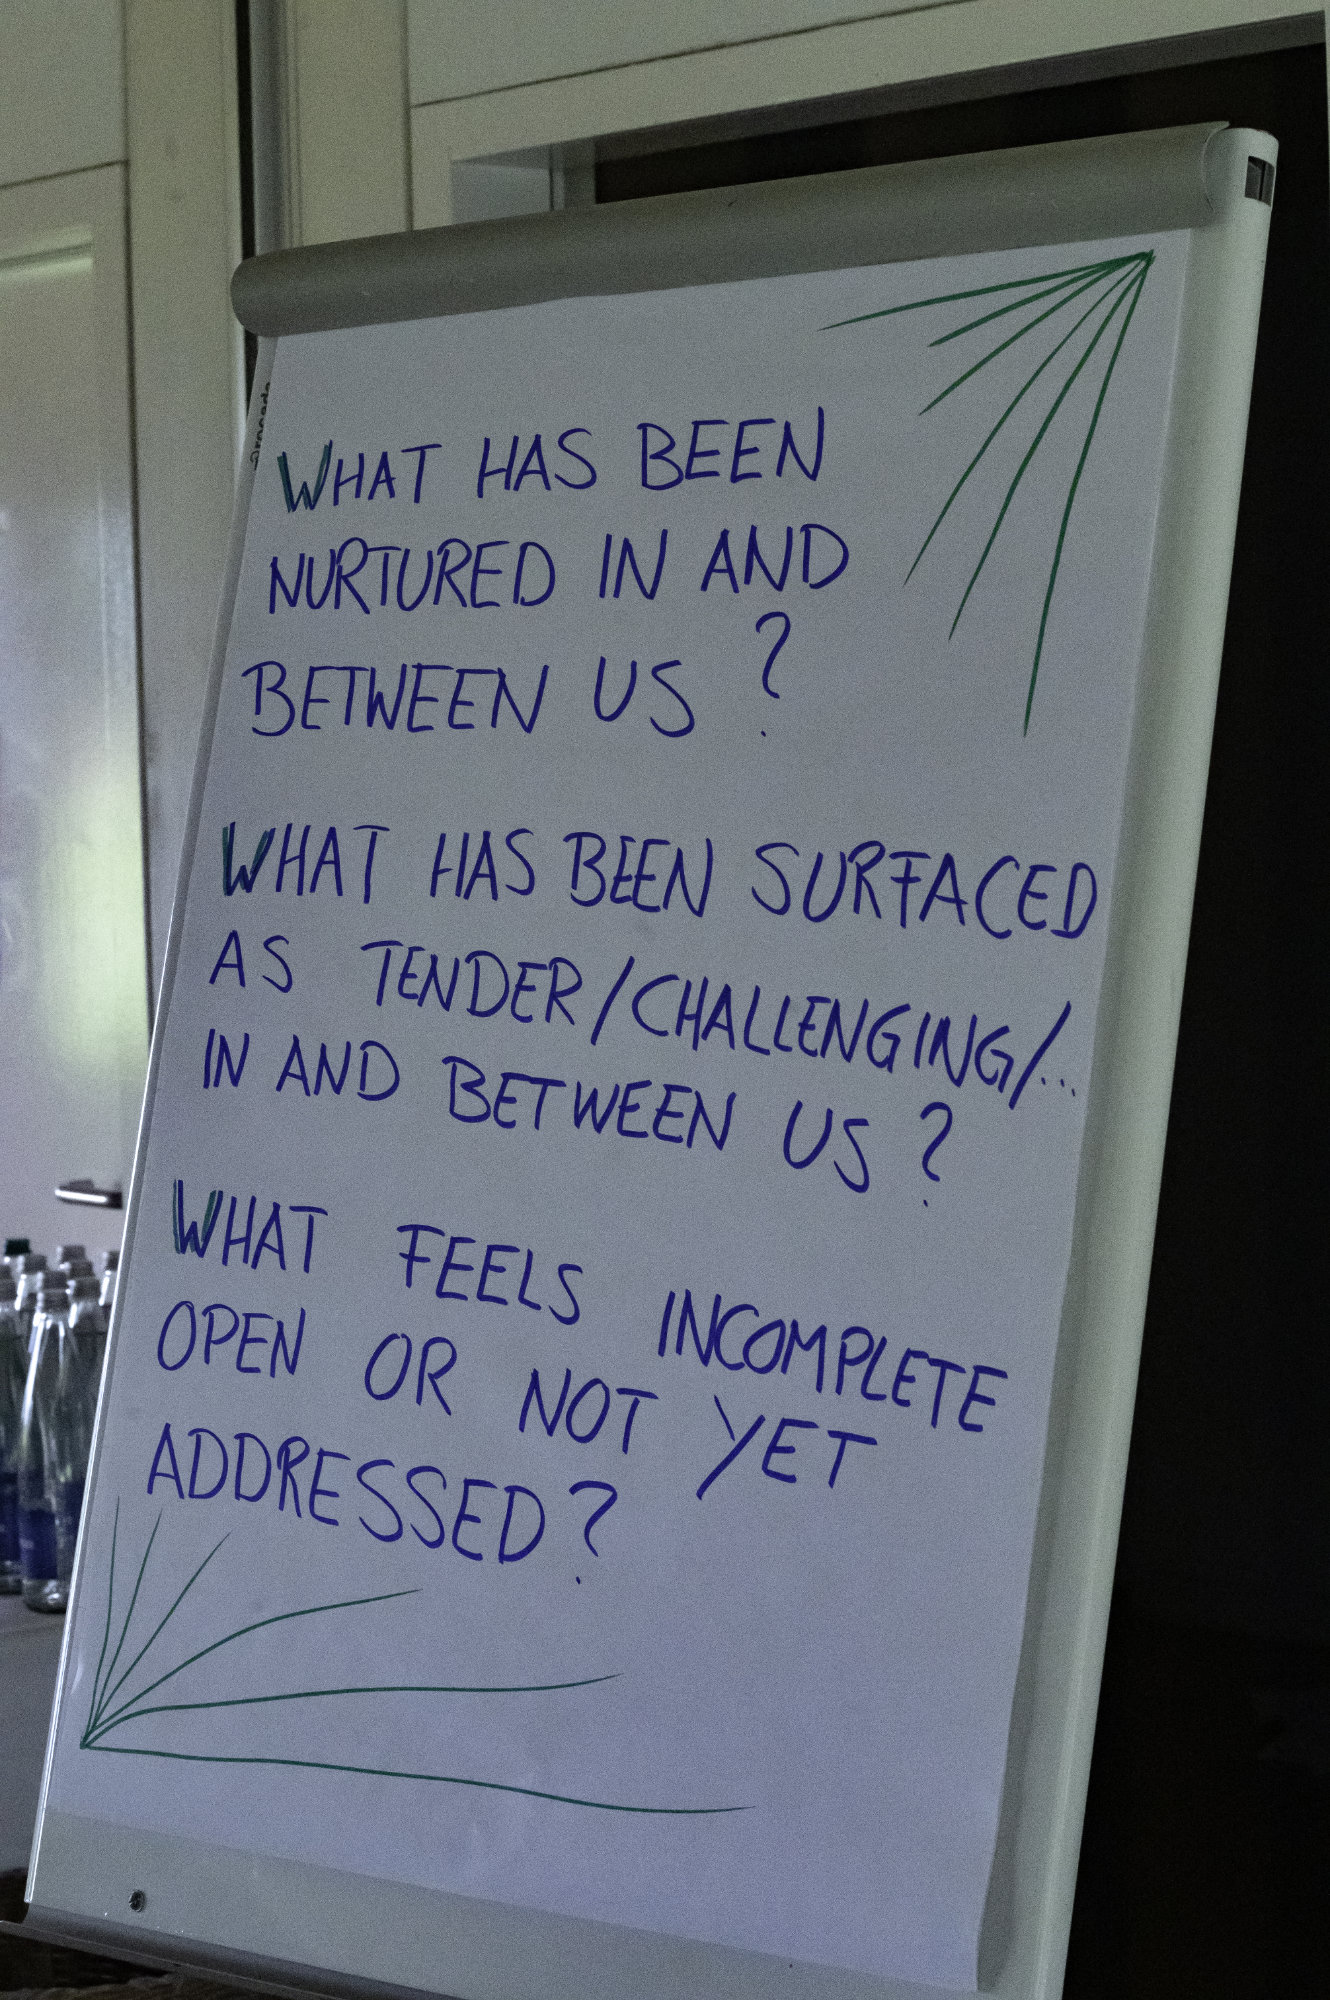 WHAT HAS BEEN
NURTURED IN AND
BETWEEN US ?
WHAT HAS BEEN SURFACED
AS TENDER/CHALLENGING/...
IN AND BETWEEN US ?
WHAT FEELS INCOMPLETE
OPEN OR NOT YET
ADDRESSED?